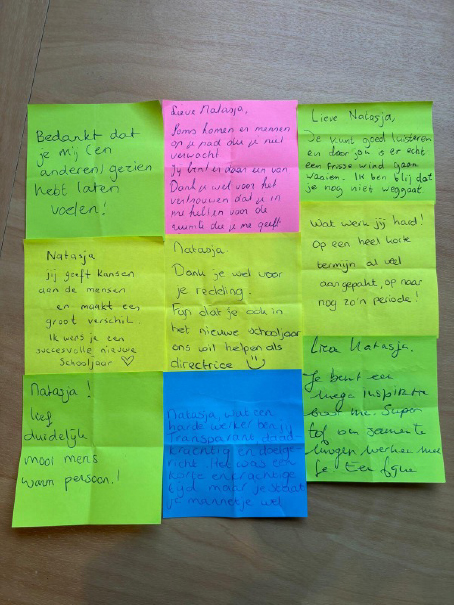 Bedankt dat
je mij (en
anderen) gezien
hebt laten
voelen!
Lieve Natasja,
Soms komen er mensen
op je pad die je niet
verwacht
Jij bent er daar een van
Dank je wel voor het
vertrouwen dat je in
me hebt en voor de
ruimte die je me geeft
Lieve Natasja,
Je kunt goed luisteren
en door jou is er echt
een frisse wind gaan
waaien. Ik ben blij dat
je nog niet weggaat
Natasja
jij geeft kansen
aan de mensen
en maakt een
groot verschil.
Ik wens je een
succesvolle nieuwe
Schooljaar ♡
Natasja.
Dank je wel voor
je redding.
Fijn dat je ook in
het nieuwe schooljaar
ons wil helpen als
directrice
Wat werk jij hard!
Op een heel korte
termijn al veel
aangepakt, op naar
nog zo'n periode!
Natasja!
Lief
duidelijk
mooi mens
warm persoon!
Natasja, wat een
harde werker ben jij
Transparant, daad-
krachtig en doelge-
richt. Het was een
korte
tijd, maar je staat
je mannetje wel
Lieve Natasja.
Je bent een
mega inspiratie
voor me. Super
tof om samen te
mogen werken met
je